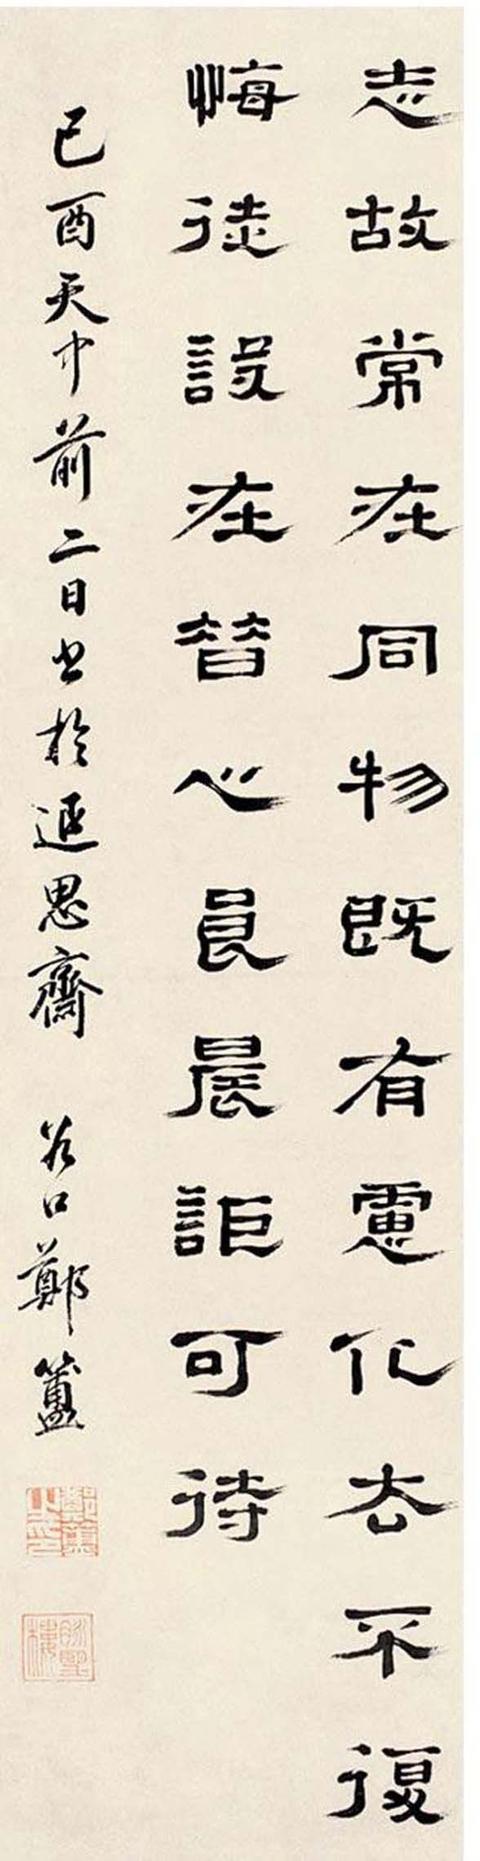 志故常在同物既有慮化去不復
悔徒設在昔心良晨詎可待
己酉天中前二日書於思齋 谷口鄭簠
鄭簠之印